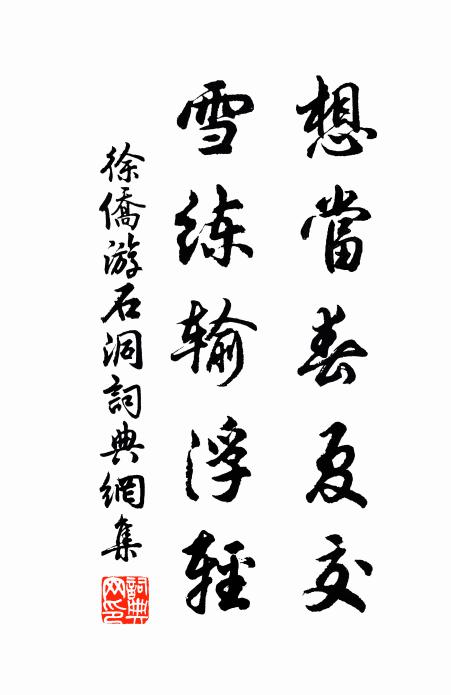 想當春夏交
雪练输浮輕
徐僑游石洞詞典網集
詞典网印